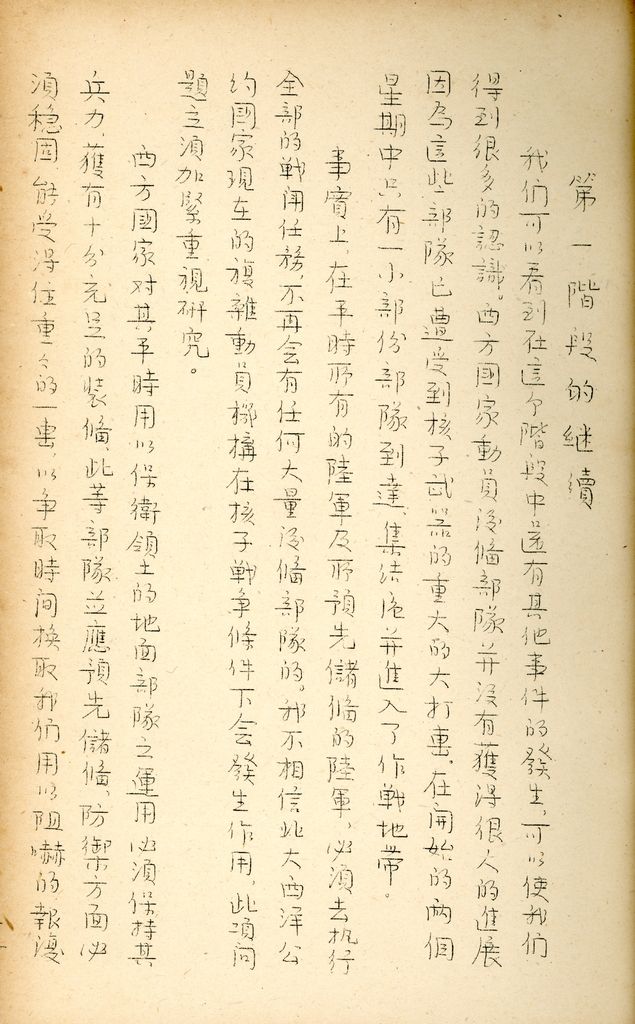 第一階段的继續
我们可以看到在這个階段中還有其他事件的發生,可以使我们
得到很多的認識。西方國家動員後偹部隊并没有獲得很大的進展
因為這些部隊已遭受到核子武器的重大的大打击.在開始的両個
星期中只有一小部份部隊到達.集结后并進入了作戰地帶。
事實上,在平時所有的陸軍及所預先儲偹的陸軍,必須去执行
全部的戰闹任務,不再会有任何大量後偹部隊的。我不相信北大西洋公
约國家現在的複雜動員機構在核子戰争條件下会發生作用,此項问
題之須加緊重視研究。
西方國家对其平時用以保衛領土的地面部隊之運用必須保持其
兵力,獲有十分充足的裝偹,此等部隊並應預先儲偹,防禦方面必
須稳固,能受得住重々的一击,以争取時间換取我们用以阻嚇的報復